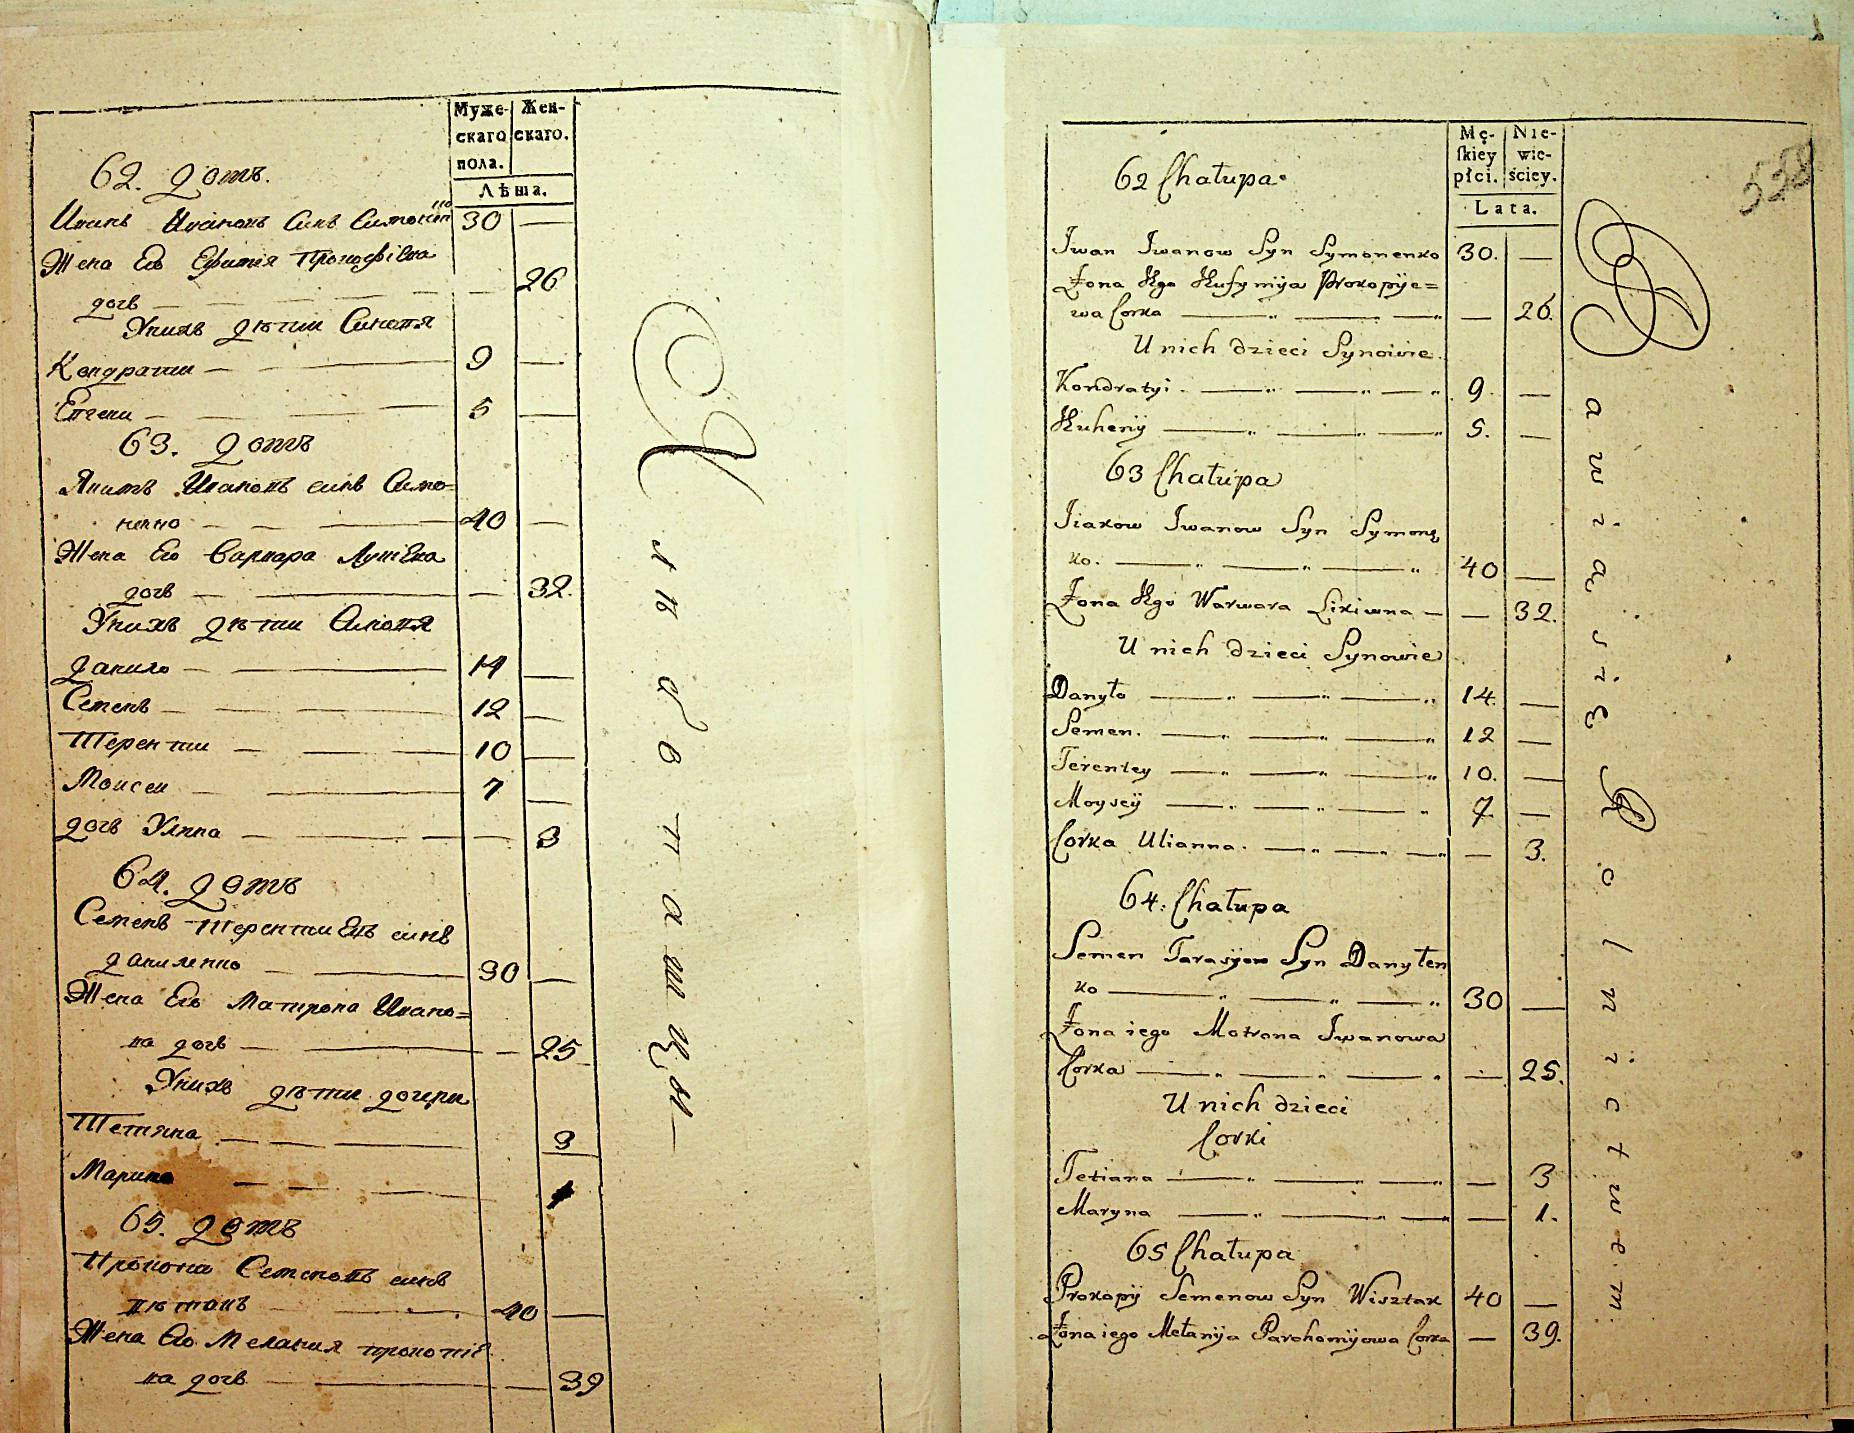 Муже- Жен-
скаго скаго.
пола.
Лѣта.
62. домъ.
Иванъ Ивановъ синъ Симоненко 30 —
Жена Его Ефимія Прокофіева
дочь — — — — — 26
Унихъ дѣти Синовя
Кондратии — — — 9 —
Евгени — — — 5 —
63. домъ
Якимъ Ивановъ синъ Симо=
ненко — — — 40 —
Жена Его Варвара Лукіева
дочь — — — 32.
Унихъ дѣти Синовя
данило — — 14 —
Семенъ — — 12 —
Терентии — — 10 —
Моисеи — — 7 —
дочь Уляна — — — 3
64. домъ
Семенъ Терентиевъ синъ
даниленко — — 30 —
Жена Его Матрона Ивано=
ва дочь — — — 25
Унихъ дѣти дочери
Тетяна — — — 3
Марина — — — 1
65. домъ
Прокопи Семеновъ синъ
— — 40 —
Жена Его Мелания прокопіе
ва дочь — — — 39
К л и а в о т а ш ц ы —
Mę- Nie-
skiey wie-
płci. ściey.
Lata.
558
62 Chałupa.
Iwan Iwanow Syn Symonenko 30. —
Żona Ego Eufymija Prokopije=
wa Corka — „ — — „ — 26.
U nich dzieci Synowie.
Kondratyi. — „ — „ — „ 9. —
Euhenij — „ — „ — „ 5. —
63 Chałupa
Jiakow Iwanow Syn Symonę
ko. — „ — „ — „ 40 —
Żona Ego Warwara Likiwna — — 32.
U nich dzieci Synowie
Danyło — „ — „ — „ 14. —
Semen. — „ — „ — „ 12 —
Terentey — „ — „ — „ 10. —
Moysey — „ — „ — „ 7 —
Corka Ulianna. — „ — „ — „ — 3.
64. Chałupa
Semen Tarasijow Syn Danyłen
ko — „ — „ — „ 30 —
Żona iego Motrona Iwanowa
Corka — „ — „ — „ — 25.
U nich dzieci
Corki
Tetiana — „ — „ — „ — 3
Maryna — „ — „ — „ — 1.
65 Chałupa
Prokopij Semenow Syn Wisztak 40 —
Żona iego Mełanija Parchomijowa Corka — 39.
B a w i ą i s i ę R o l n i c t w e m.